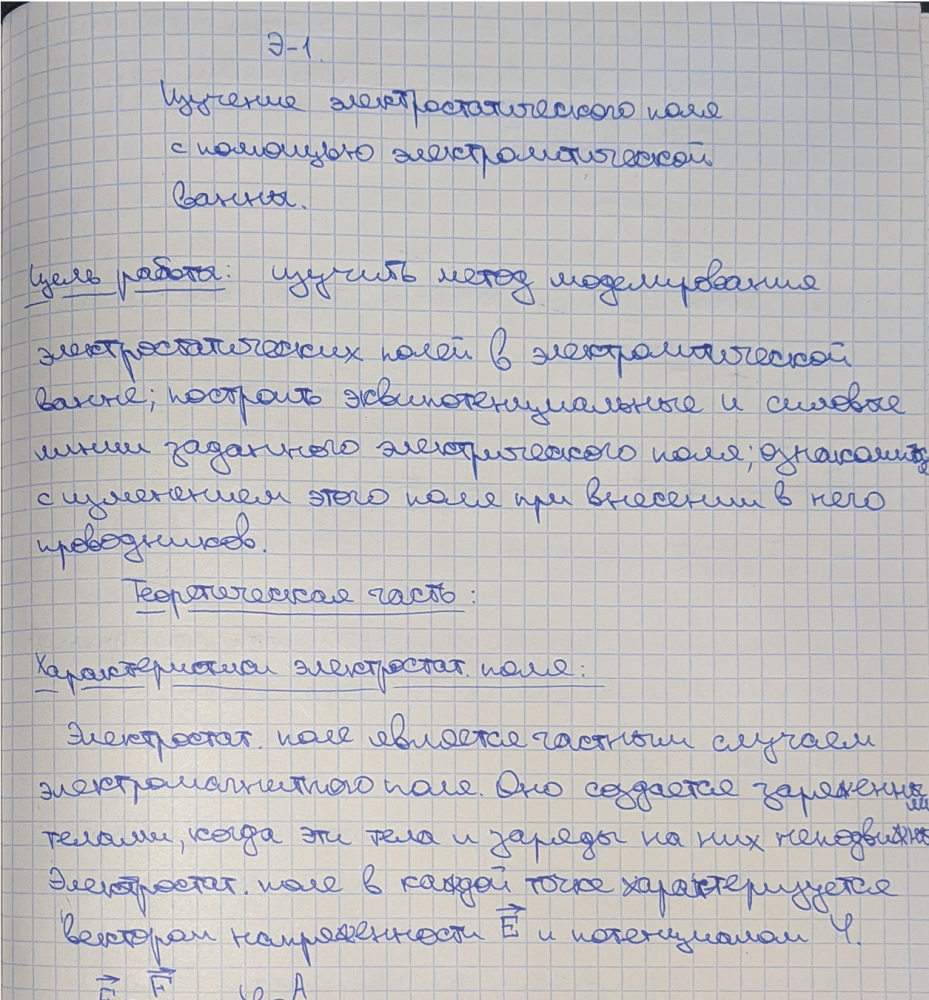 Э-1.
Изучение электростатического поля
с помощью электролитической
ванны.
Цель работы: изучить метод моделирования
электростатических полей в электролитической
ванне; построить эквипотенциальные и силовые
линии заданного электрического поля; ознакомиться
с изменением этого поля при внесении в него
проводников.
Теоретическая часть:
Характеристики электростат. поля:
Электростат. поле является частным случаем
электромагнитного поля. Оно создается заряженными
телами, когда эти тела и заряды на них неподвижны
Электростат. поле в каждой точке характеризуется
вектором напряженности E и потенциалом φ.
E F φ A